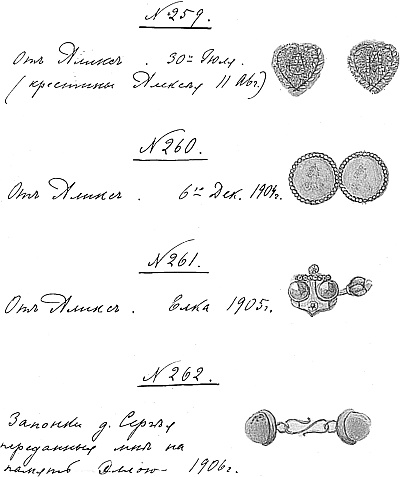 N 259.
Отъ Аликсъ . 30го Июля.
(крестины Алексѣя 11 Авг.)
N 260.
Отъ Аликсъ . 6го Дек. 1904г.
N 261.
Отъ Аликсъ . Елка 1905г.
N 262.
Запонки д. Сергѣя
переданныя мнѣ на
память Эллою - 1906г.